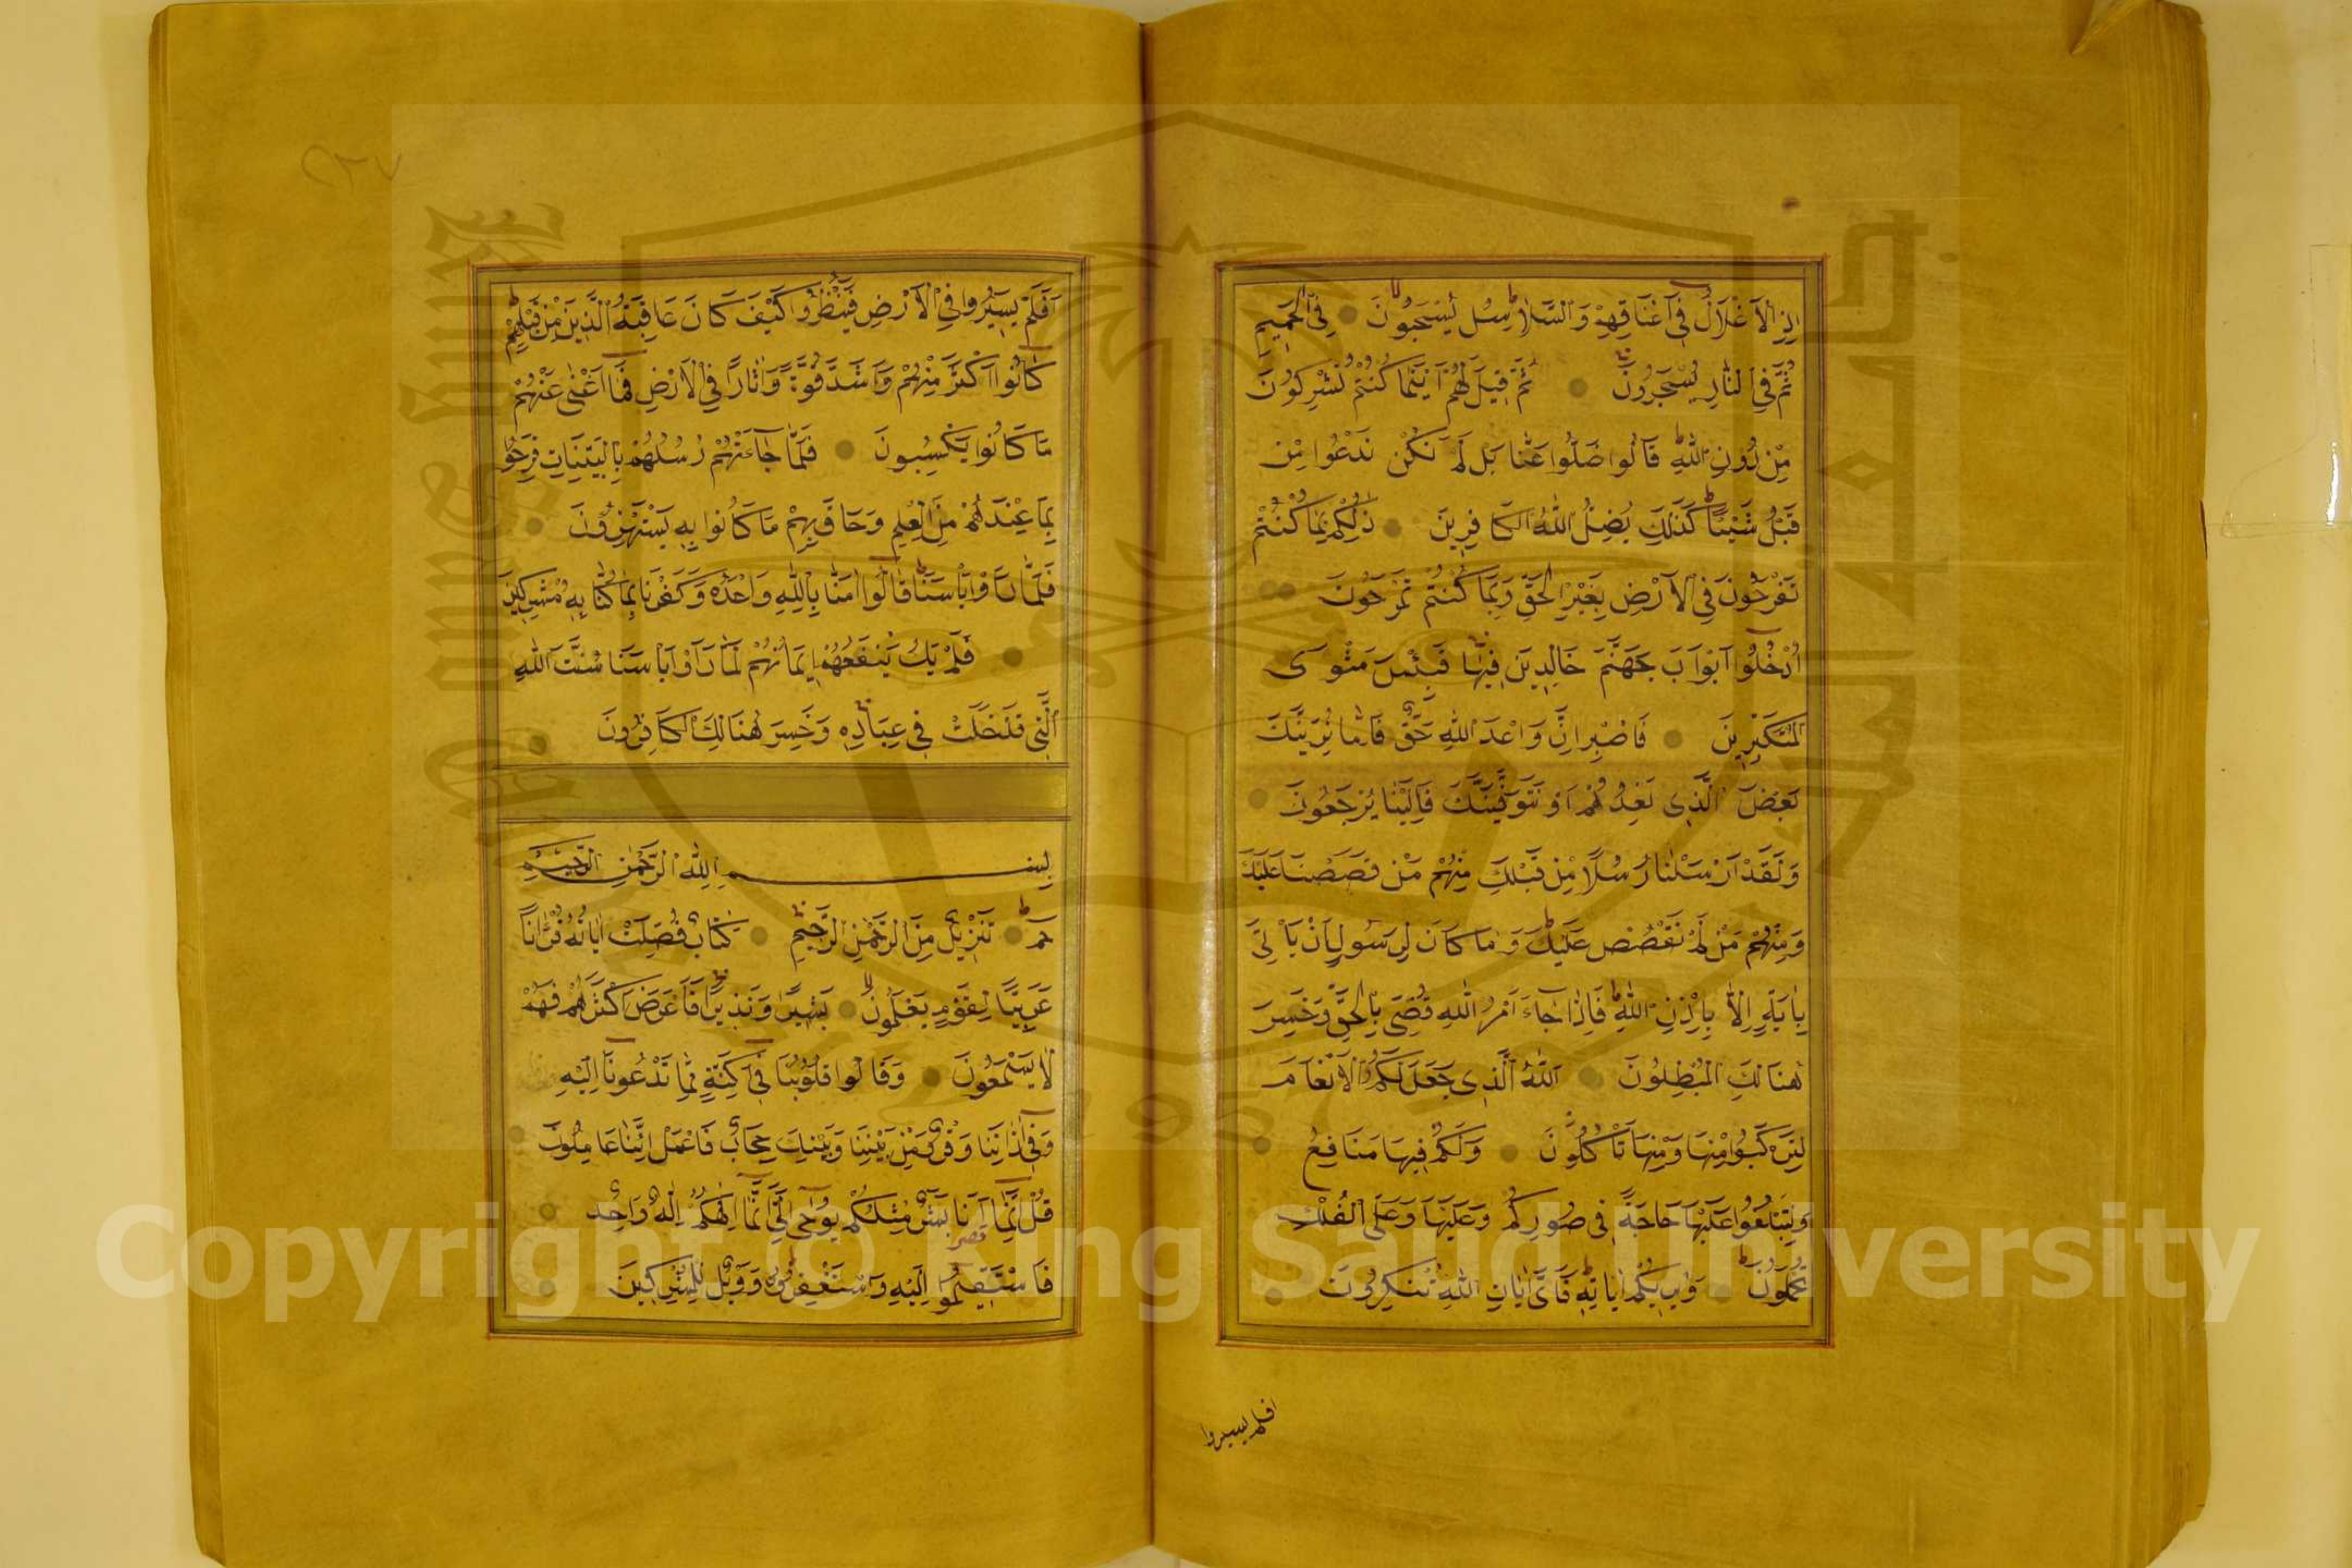 اِذِ الْاَغْلَالُ فِىٓ اَعْنَاقِهِمْ وَالسَّلَاسِلُ يُسْحَبُونَ فِى الْحَمِيمِ
ثُمَّ فِى النَّارِ يُسْجَرُونَ ثُمَّ قِيلَ لَهُمْ اَيْنَمَا كُنْتُمْ تُشْرِكُونَ
مِنْ دُونِ اللّٰهِ قَالُوا ضَلُّوا عَنَّا بَلْ لَمْ نَكُنْ نَدْعُوا مِنْ
قَبْلُ شَيْئًا كَذٰلِكَ يُضِلُّ اللّٰهُ الْكَافِرِينَ ذٰلِكُمْ بِمَا كُنْتُمْ
تَفْرَحُونَ فِى الْاَرْضِ بِغَيْرِ الْحَقِّ وَبِمَا كُنْتُمْ تَمْرَحُونَ
اُدْخُلُوٓا اَبْوَابَ جَهَنَّمَ خَالِدِينَ فِيهَا فَبِئْسَ مَثْوَى
الْمُتَكَبِّرِينَ فَاصْبِرْ اِنَّ وَعْدَ اللّٰهِ حَقٌّ فَاِمَّا نُرِيَنَّكَ
بَعْضَ الَّذِى نَعِدُهُمْ اَوْ نَتَوَفَّيَنَّكَ فَاِلَيْنَا يُرْجَعُونَ
وَلَقَدْ اَرْسَلْنَا رُسُلًا مِنْ قَبْلِكَ مِنْهُمْ مَنْ قَصَصْنَا عَلَيْكَ
وَمِنْهُمْ مَنْ لَمْ نَقْصُصْ عَلَيْكَ وَمَا كَانَ لِرَسُولٍ اَنْ يَاْتِىَ
بِاٰيَةٍ اِلَّا بِاِذْنِ اللّٰهِ فَاِذَا جَآءَ اَمْرُ اللّٰهِ قُضِىَ بِالْحَقِّ وَخَسِرَ
هُنَالِكَ الْمُبْطِلُونَ اَللّٰهُ الَّذِى جَعَلَ لَكُمُ الْاَنْعَامَ
لِتَرْكَبُوا مِنْهَا وَمِنْهَا تَاْكُلُونَ وَلَكُمْ فِيهَا مَنَافِعُ
وَلِتَبْلُغُوا عَلَيْهَا حَاجَةً فِى صُدُورِكُمْ وَعَلَيْهَا وَعَلَى الْفُلْكِ
تُحْمَلُونَ وَيُرِيكُمْ اٰيَاتِهِ فَاَىَّ اٰيَاتِ اللّٰهِ تُنْكِرُونَ
افلم يسيروا
٢٧
اَفَلَمْ يَسِيرُوا فِى الْاَرْضِ فَيَنْظُرُوا كَيْفَ كَانَ عَاقِبَةُ الَّذِينَ مِنْ قَبْلِهِمْ
كَانُوٓا اَكْثَرَ مِنْهُمْ وَاَشَدَّ قُوَّةً وَاٰثَارًا فِى الْاَرْضِ فَمَآ اَغْنٰى عَنْهُمْ
مَا كَانُوا يَكْسِبُونَ فَلَمَّا جَآءَتْهُمْ رُسُلُهُمْ بِالْبَيِّنَاتِ فَرِحُوا
بِمَا عِنْدَهُمْ مِنَ الْعِلْمِ وَحَاقَ بِهِمْ مَا كَانُوا بِهِ يَسْتَهْزِؤُنَ
فَلَمَّا رَاَوْا بَاْسَنَا قَالُوٓا اٰمَنَّا بِاللّٰهِ وَحْدَهُ وَكَفَرْنَا بِمَا كُنَّا بِهِ مُشْرِكِينَ
فَلَمْ يَكُ يَنْفَعُهُمْ اِيمَانُهُمْ لَمَّا رَاَوْا بَاْسَنَا سُنَّتَ اللّٰهِ
الَّتِى قَدْ خَلَتْ فِى عِبَادِهِ وَخَسِرَ هُنَالِكَ الْكَافِرُونَ
بِسْمِ اللّٰهِ الرَّحْمٰنِ الرَّحِيمِ
حٰمٓ تَنْزِيلٌ مِنَ الرَّحْمٰنِ الرَّحِيمِ كِتَابٌ فُصِّلَتْ اٰيَاتُهُ قُرْاٰنًا
عَرَبِيًّا لِقَوْمٍ يَعْلَمُونَ بَشِيرًا وَنَذِيرًا فَاَعْرَضَ اَكْثَرُهُمْ فَهُمْ
لَا يَسْمَعُونَ وَقَالُوا قُلُوبُنَا فِىٓ اَكِنَّةٍ مِمَّا تَدْعُونَآ اِلَيْهِ
وَفِىٓ اٰذَانِنَا وَقْرٌ وَمِنْ بَيْنِنَا وَبَيْنِكَ حِجَابٌ فَاعْمَلْ اِنَّنَا عَامِلُونَ
قُلْ اِنَّمَآ اَنَا بَشَرٌ مِثْلُكُمْ يُوحٰٓى اِلَىَّ اَنَّمَآ اِلٰهُكُمْ اِلٰهٌ وَاحِدٌ
فَاسْتَقِيمُوٓا اِلَيْهِ وَاسْتَغْفِرُوهُ وَوَيْلٌ لِلْمُشْرِكِينَ
Copyright © King Saud University